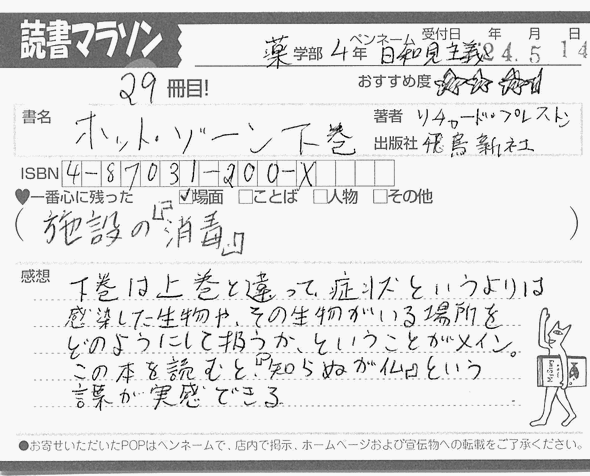 読書マラソン
ペンネーム 受付日 年 月 日
薬 学部 4 年 日和見主義 24.5 14
29 冊目!
おすすめ度 ☆☆☆☆
書名 ホット・ゾーン 下巻
著者 リチャード・プレストン
出版社 飛鳥新社
ISBN 4-87031-200-X
♥一番心に残った ☑場面 □ことば □人物 □その他
(施設の『消毒』)
感想
下巻は上巻と違って、症状というよりは
感染した生物や、その生物がいる場所を
どのようにして扱うか、ということがメイン。
この本を読むと、『知らぬが仏』という
言葉が実感できる
●お寄せいただいたPOPはペンネームで、店内で掲示、ホームページおよび宣伝物への転載をご了承ください。